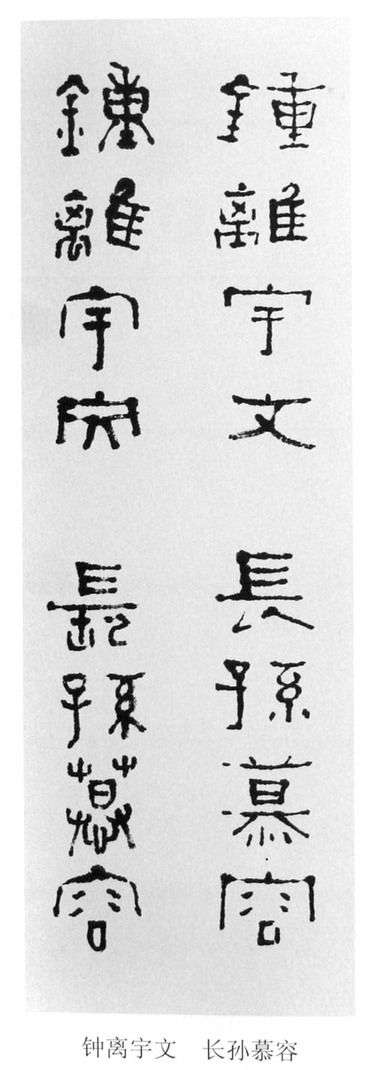 鍾離宇文 長孫慕容
鍾離宇 長孫慕容
钟离宇文 长孙慕容